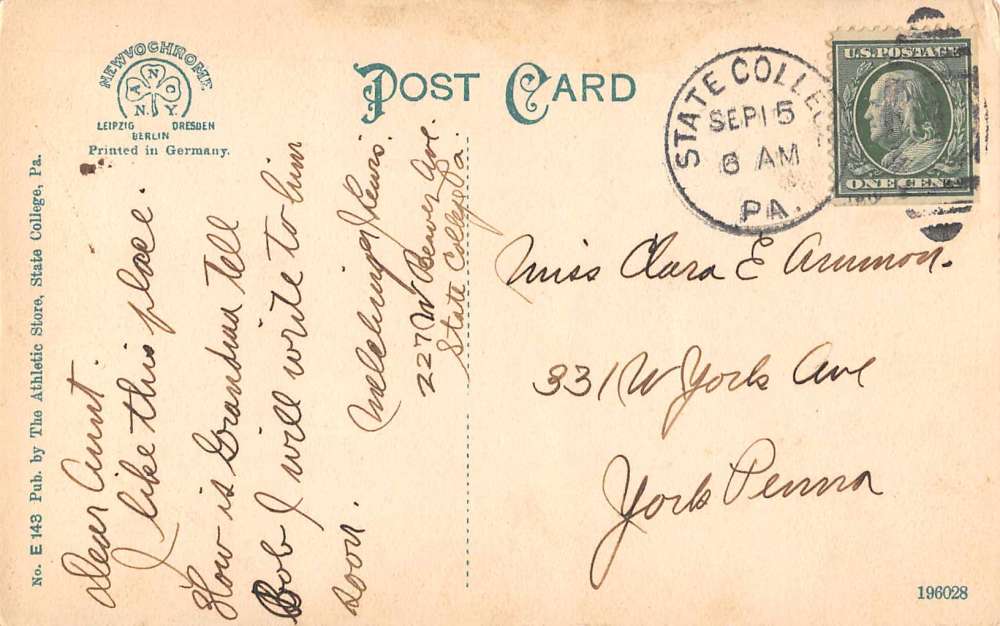 NEWVOCHROME
A N O
N. Y.
LEIPZIG DRESDEN
BERLIN
Printed in Germany.
POST CARD
STATE COLLEGE
SEP 15
6 AM
PA.
U.S. POSTAGE
ONE CENT
No. E 143 Pub. by The Athletic Store, State College, Pa.
Dear Aunt.
I like this place.
How is Grandma Tell
Bob I will write to him
soon.
Lewis
227 W Beaver Ave.
State College Pa
Miss Clara E Ammon.
331 W York Ave
York Penna
196028